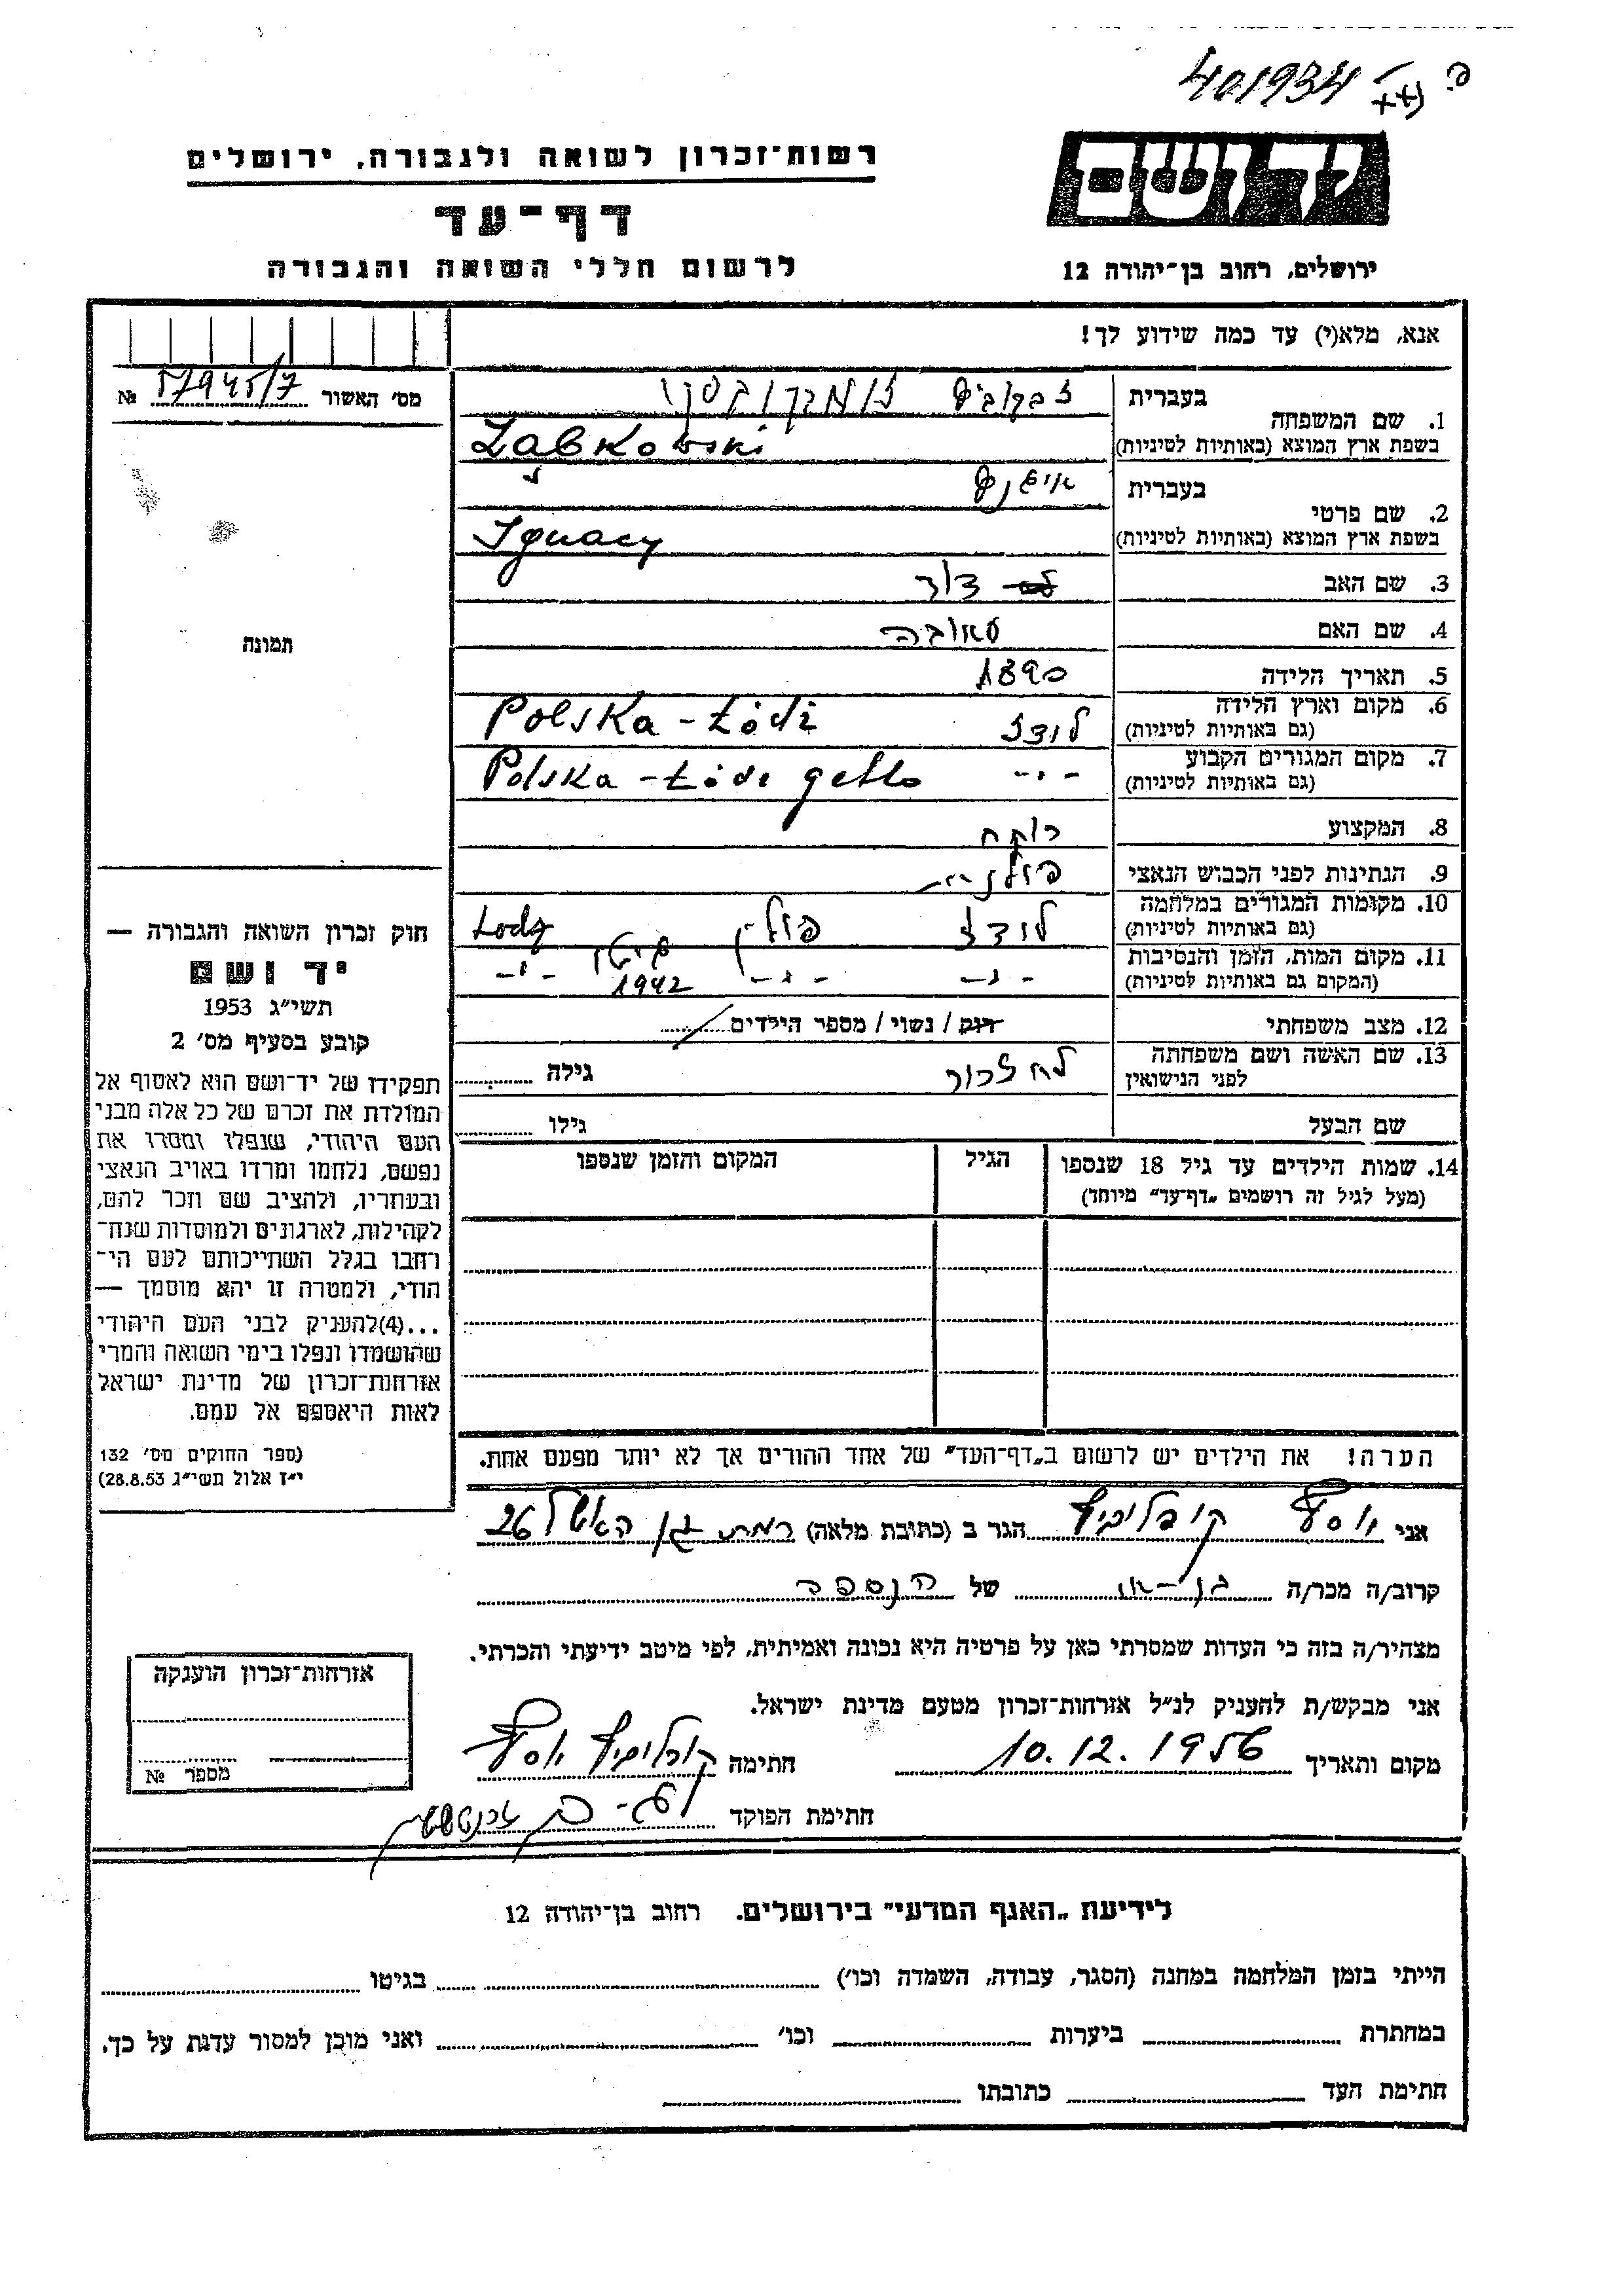 401934
רשות־זכרון לשואה ולגבורה, ירושלים
יד ושם
דף־עד
לרשום חללי השואה והגבורה
ירושלים, רחוב בן־יהודה 12
אנא, מלא(י) עד כמה שידוע לך!
מס׳ האשור № 57945/7
בעברית
1. שם המשפחה
בשפת ארץ המוצא (באותיות לטיניות) Ząbkowski
בעברית
2. שם פרטי
בשפת ארץ המוצא (באותיות לטיניות) Ignacy
3. שם האב דוד
4. שם האם טאובה
5. תאריך הלידה 1890
6. מקום וארץ הלידה לודז Polska - Łódź
(גם באותיות לטיניות)
7. מקום המגורים הקבוע -"- Polska - Łódź getto
(גם באותיות לטיניות)
8. המקצוע רוקח
9. הנתינות לפני הכבוש הנאצי פולנית
10. מקומות המגורים במלחמה לודז פולין גיטו Łodz
(גם באותיות לטיניות)
11. מקום המות, הזמן והנסיבות -"- -"- 1942 -"-
(המקום גם באותיות לטיניות)
12. מצב משפחתי רוק / נשוי / מספר הילדים
13. שם האשה ושם משפחתה לא זכור גילה
לפני הנישואין
שם הבעל גילו
14. שמות הילדים עד גיל 18 שנספו הגיל המקום והזמן שנספו
(מעל לגיל זה רושמים „דף־עד” מיוחד)
הערה! את הילדים יש לרשום ב„דף־העד” של אחד ההורים אך לא יותר מפעם אחת.
תמונה
חוק זכרון השואה והגבורה —
יד ושם
תשי״ג 1953
קובע בסעיף מס׳ 2
תפקידו של יד־ושם הוא לאסוף אל
המולדת את זכרם של כל אלה מבני
העם היהודי, שנפלו ומסרו את
נפשם, נלחמו ומרדו באויב הנאצי
ובעוזריו, ולהציב שם וזכר להם,
לקהילות, לארגונים ולמוסדות שנח־
רחבו בגלל השתייכותם לעם הי־
הודי, ולמטרה זו יהא מוסמך —
...(4)להעניק לבני העם היהודי
שהושמדו ונפלו בימי השואה והמרי
אזרחות־זכרון של מדינת ישראל
לאות היאספם אל עמם.
(ספר החוקים מס׳ 132
י״ז אלול תשי״ג 28.8.53)
אני יוסף הגר ב (כתובת מלאה) רמת גן האשל 26
קרוב/ה מכר/ה בן-אח של הנספה
מצהיר/ה בזה כי העדות שמסרתי כאן על פרטיה היא נכונה ואמיתית, לפי מיטב ידיעתי והכרתי.
אני מבקש/ת להעניק לנ״ל אזרחות־זכרון מטעם מדינת ישראל.
מקום ותאריך 10.12.1956 חתימה יוסף
חתימת הפוקד
אזרחות־זכרון הוענקה
מספר №
לידיעת „האגף המדעי” בירושלים. רחוב בן־יהודה 12
הייתי בזמן המלחמה במחנה (הסגר, עבודה, השמדה וכו׳) בגיטו
במחתרת ביערות וכו׳ ואני מוכן למסור עדות על כך.
חתימת העד כתובתו